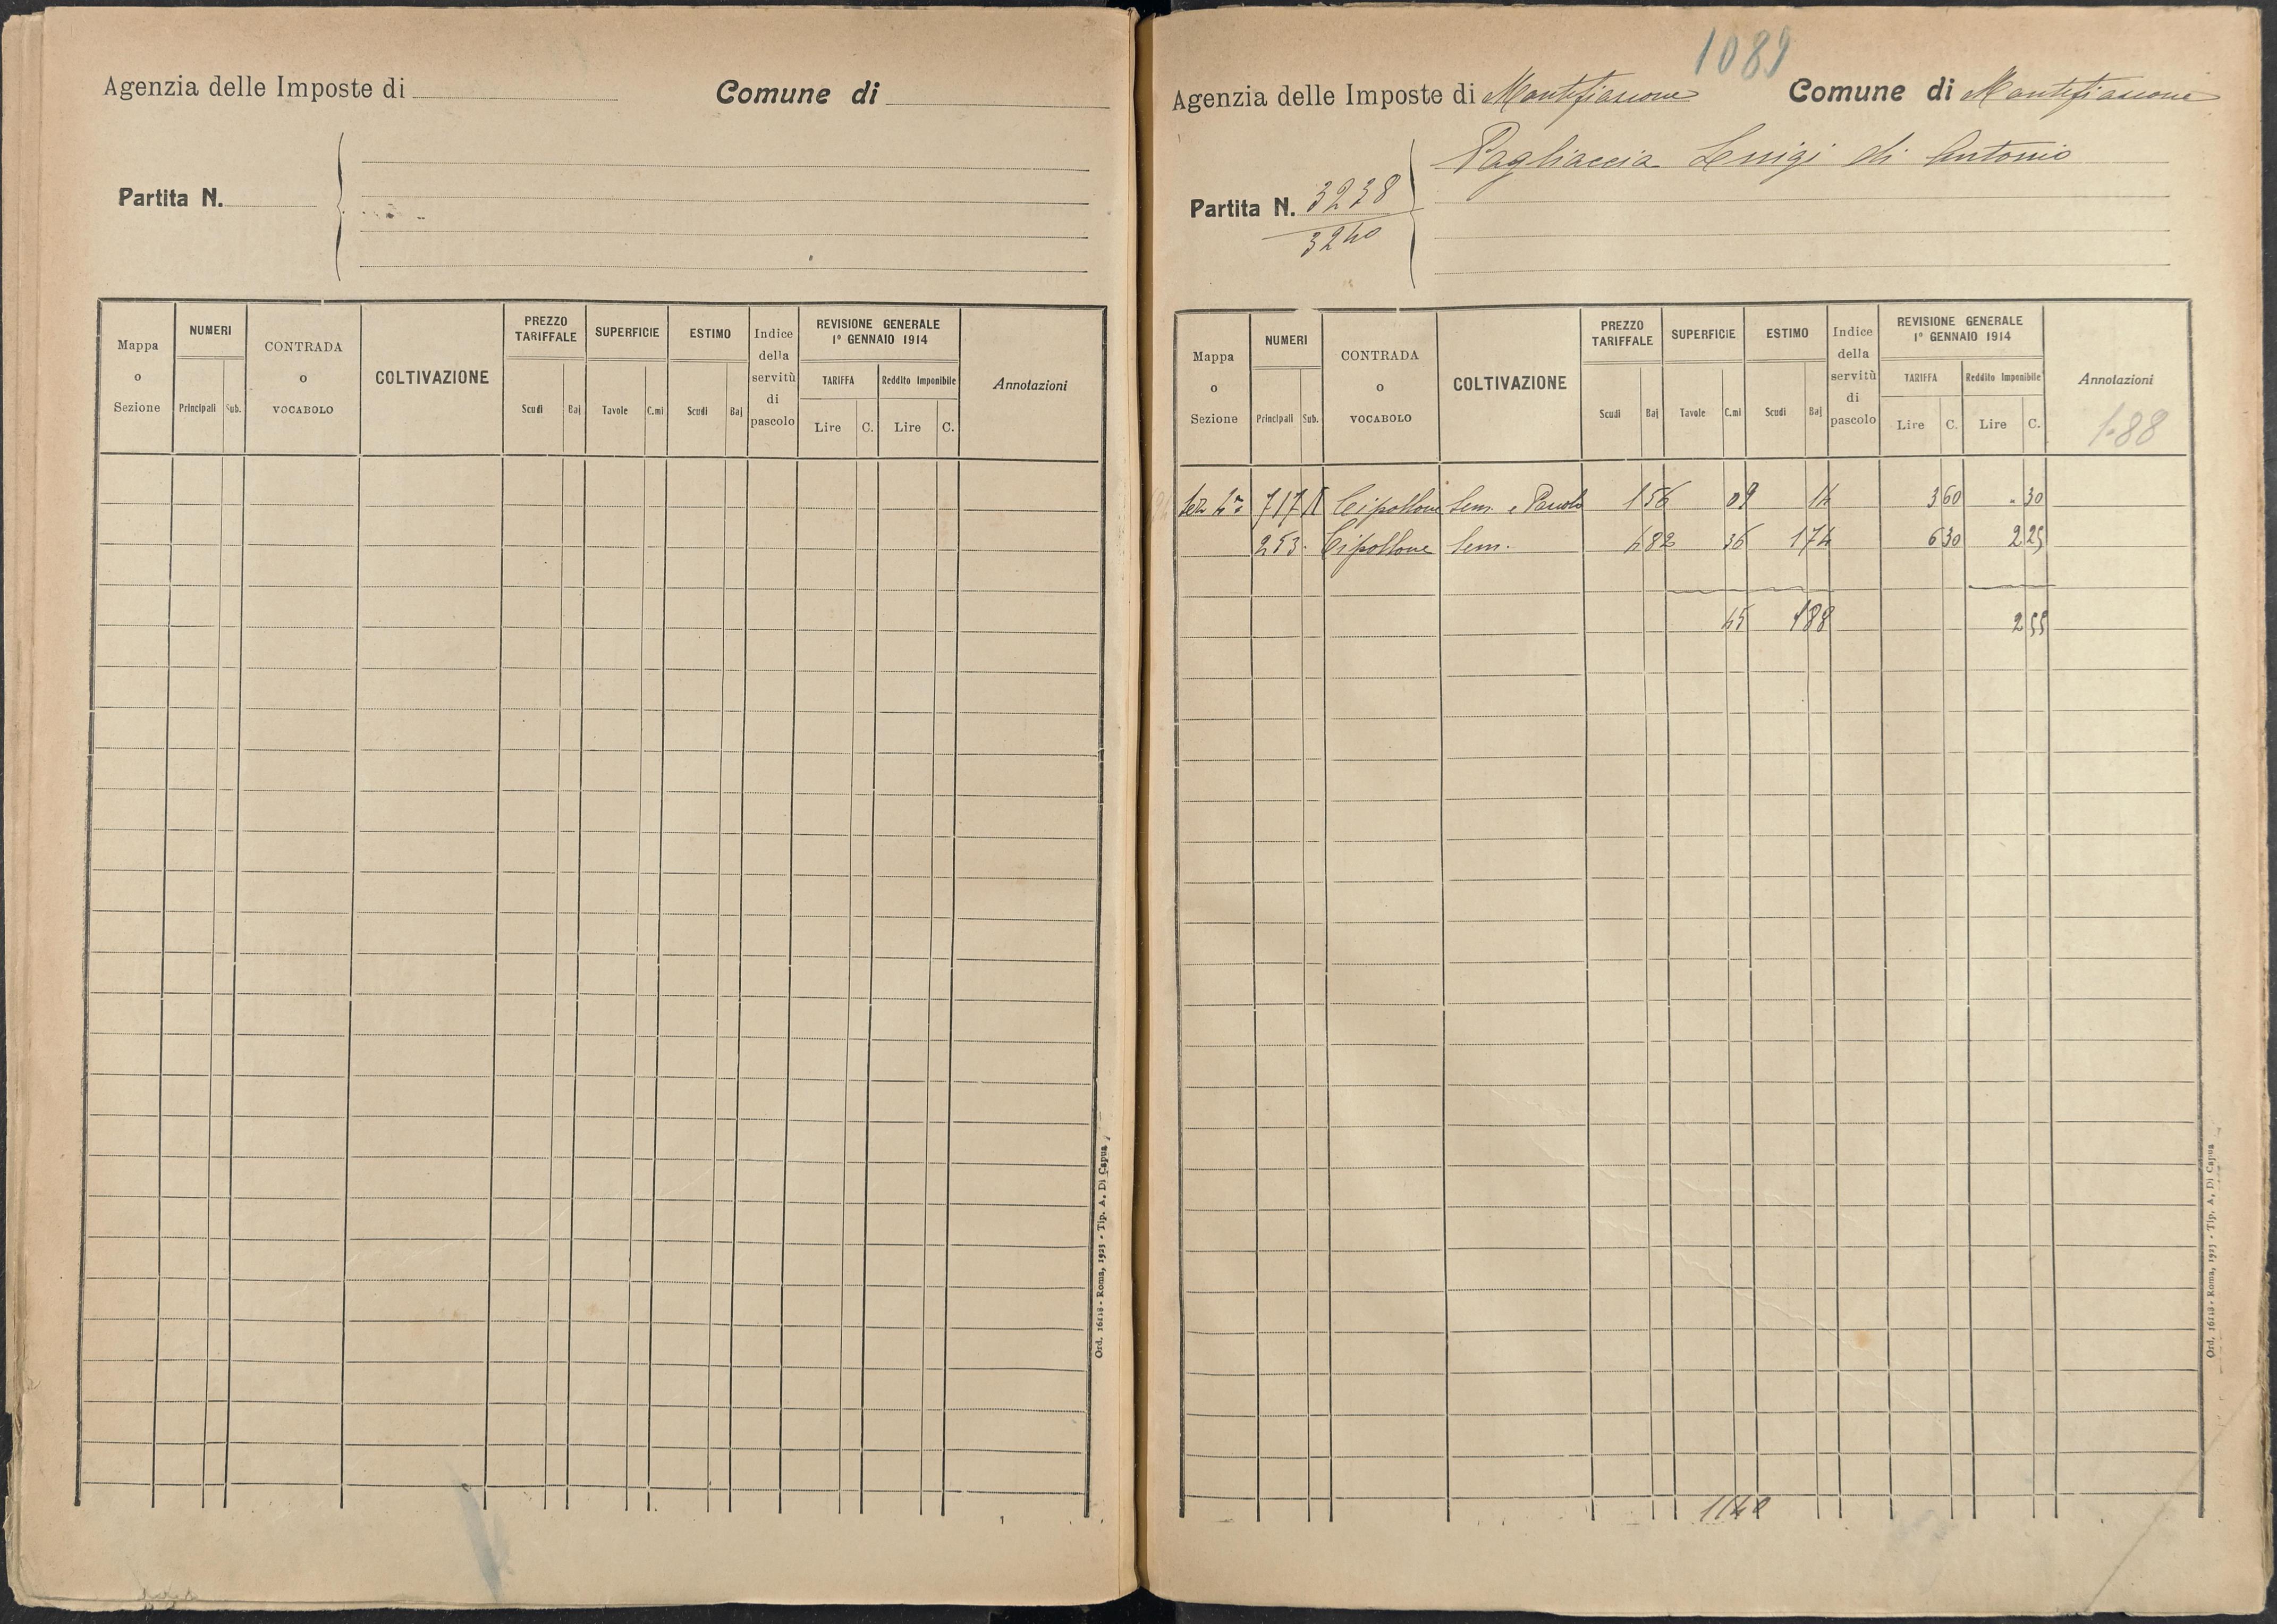 Agenzia delle Imposte di
Comune di
Partita N.
Mappa o Sezione
NUMERI
Principali Sub.
CONTRADA o VOCABOLO
COLTIVAZIONE
PREZZO TARIFFALE
Scudi Baj
SUPERFICIE
Tavole C.mi
ESTIMO
Scudi Baj
Indice della servitù di pascolo
REVISIONE GENERALE
1° GENNAIO 1914
TARIFFA
Lire C.
Reddito Imponibile
Lire C.
Annotazioni
Ord. 16118 - Roma, 1923 - Tip. A. Di Capua
1089
Agenzia delle Imposte di Montefiascone Comune di Montefiascone
Pagliaccia Luigi di Antonio
Partita N. 3238
3240
Mappa o Sezione
NUMERI
Principali Sub.
CONTRADA o VOCABOLO
COLTIVAZIONE
PREZZO TARIFFALE
Scudi Baj
SUPERFICIE
Tavole C.mi
ESTIMO
Scudi Baj
Indice della servitù di pascolo
REVISIONE GENERALE
1° GENNAIO 1914
TARIFFA
Lire C.
Reddito Imponibile
Lire C.
Annotazioni
1.88
717 Cipollone Sem. e Pascolo 1 56 09 14 3 60 . 30
253 Cipollone Sem. 4 82 36 1 74 6 30 2 25
45 1 88 2 55
1140
Ord. 16118 - Roma, 1923 - Tip. A. Di Capua